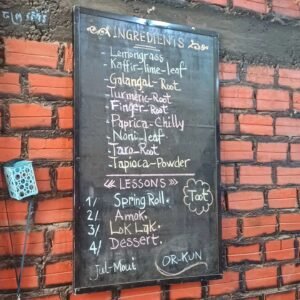 INGREDIENTS
- Lemongrass
- Kaffir-lime-leaf
- Galangal-Root
- Turmeric-Root
- Finger-Root
- Paprica-Chilly
- Noni-leaf
- Taro-Root
- Tapioca-Powder
LESSONS
1/ Spring Roll.
2/ Amok.
3/ Lok Lak.
4/ Dessert.
Toot
Jul-Moui
OR-KUN